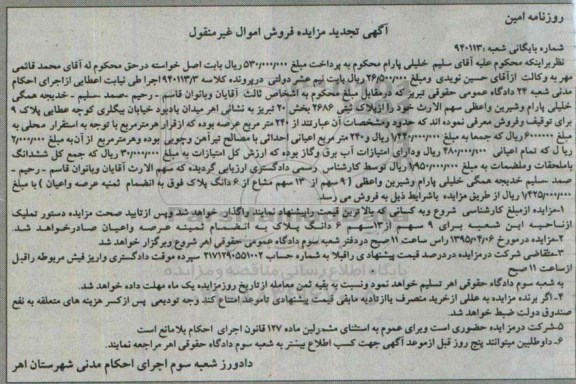 روزنامه امین
آگهی تجدید مزایده فروش اموال غیرمنقول
شماره بایگانی شعبه :۹۴۰۱۱۳
نظر براینکه محکوم علیه آقای سلیم خلیلی پارام محکوم به پرداخت مبلغ ۵۳۰/۰۰۰/۰۰۰ ریال بابت اصل خواسته درحق محکوم له آقای محمد قائمی
مهر به وکالت ازآقای حسین نویدی ومبلغ ۲۶/۵۰۰/۰۰۰ ریال بابت نیم عشر دولتی درپرونده کلاسه ۹۴۰۱۱۳/۳ اجرا طی نیابت اعطایی ازاجرای احکام
مدنی شعبه ۲۴ دادگاه عمومی حقوقی تبریز که درمقابل مبلغ محکوم به اشخاص ثالث آقایان وبانوان قاسم - رحیم -صمد -سلیم - خدیجه همگی
خلیلی پارام وشیرین واعظی سهم الارث خود را ازپلاک ثبتی ۲۶۸۶ بخش ۲۰ تبریز به نشانی اهر میدان بادبود خیابان بیگلری کوچه عطایی پلاک ۹
برای توقیف وفروش معرفی نموده اند که حدود ومشخصات آن عبارتند از ۲۴۰ متر مربع عرصه بوده که ازقرار هرمترمربع با توجه به استقرار محلی به
مبلغ ۶۰۰۰۰۰۰ ریال که جمعا به مبلغ ۱/۴۴۰/۰۰۰/۰۰۰ ریال و۲۴۰ متر مربع اعیانی احداثی با مصالح تیرآهن وچوبی بوده وهرمترمربع از آن به مبلغ ۲/۰۰۰/۰۰۰
ریا ل که تمام اعیانی ۴۸۰/۰۰۰/۰۰۰ ریال ودارای امتیازات آب برق وگاز بوده که ارزش کل امتیازات به مبلغ ۳۰/۰۰۰/۰۰۰ ریال که جمع کل ششدانگ
باملحقات ومنضمات به مبلغ ۱/۹۵۰/۰۰۰/۰۰۰ ریال توسط کارشناس رسمی دادگستری ارزیابی گردیده که سهم الارث آقایان وبانوان قاسم - رحیم -
صمد -سلیم خدیجه همگی خلیلی پارام وشیرین واعظی ( ۹ سهم از ۱۳ سهم مشاع از ۶ دانگ پلاک فوق به انضمام ثمنیه عرصه واعیان ) با مبلغ
ریال از طریق مزایده باشرایط ذیل به فروش می رسد
۱-مزایده ازمبلغ کارشناسی شروع وبه کسانی که بالا ترین قیمت راپیشنهاد نمایند واگذار خواهد شد وپس ازتایید صحت مزایده دستور تملیک
ازناحیه این شعبه برای ۹ سهم از ۱۳سهم ۶ دانگ پلاک به انضمام ثمنیه عرصه واعیان صادرخواهد شد.
۲-مزایده درمورخ ۱۳۹۵/۰۴/۰۶ راس ساعت ۱۱ صبح دردفتر شعبه سوم دادگاه عمومی حقوقی اهر شروع وبرگزار خواهد شد
۳-متقاضی شرکت درمزایده درصد قیمت پیشنهاد ی رافبلا به شماره حساب ۲۱۷۱۲۹۰۵۵۱۰۰۲ سپرده موقت دادگستری واریز فیش مربوطه راقبل
ازساعت ۱۱ صبح
به شعبه سوم دادگاه حقوقی اهر تسلیم خواهد نمود ونسبت به بقیه ثمن معامله ازتاریخ روزمزایده یک ماه مهلت داده خواهد شد.
۴-اگر برنده مزایده به عللی ازخرید منصرف یاازتادیه مابقی قیمت پیشنهادی تاموعد امتناع کند وجه تودیعی پس ازکسر هزینه های متعلقه به نفع
صندوق دولت ضبط خواهد شد.
۵-شرکت درمزایده حضوری است وبرای عموم به استثنای مندرلین ماده ۱۲۷ قانون اجرای احکام بلامانع است
۶-داوطلبین میتوانند پنج روز قبل ازموعد آگهی جهت کسب اطلاع بیشتر به شعبه سوم دادگاه حقوقی اهر مراجعه نمایند.
دادورز شعبه سوم اجرای احکام مدنی شهرستان اهر